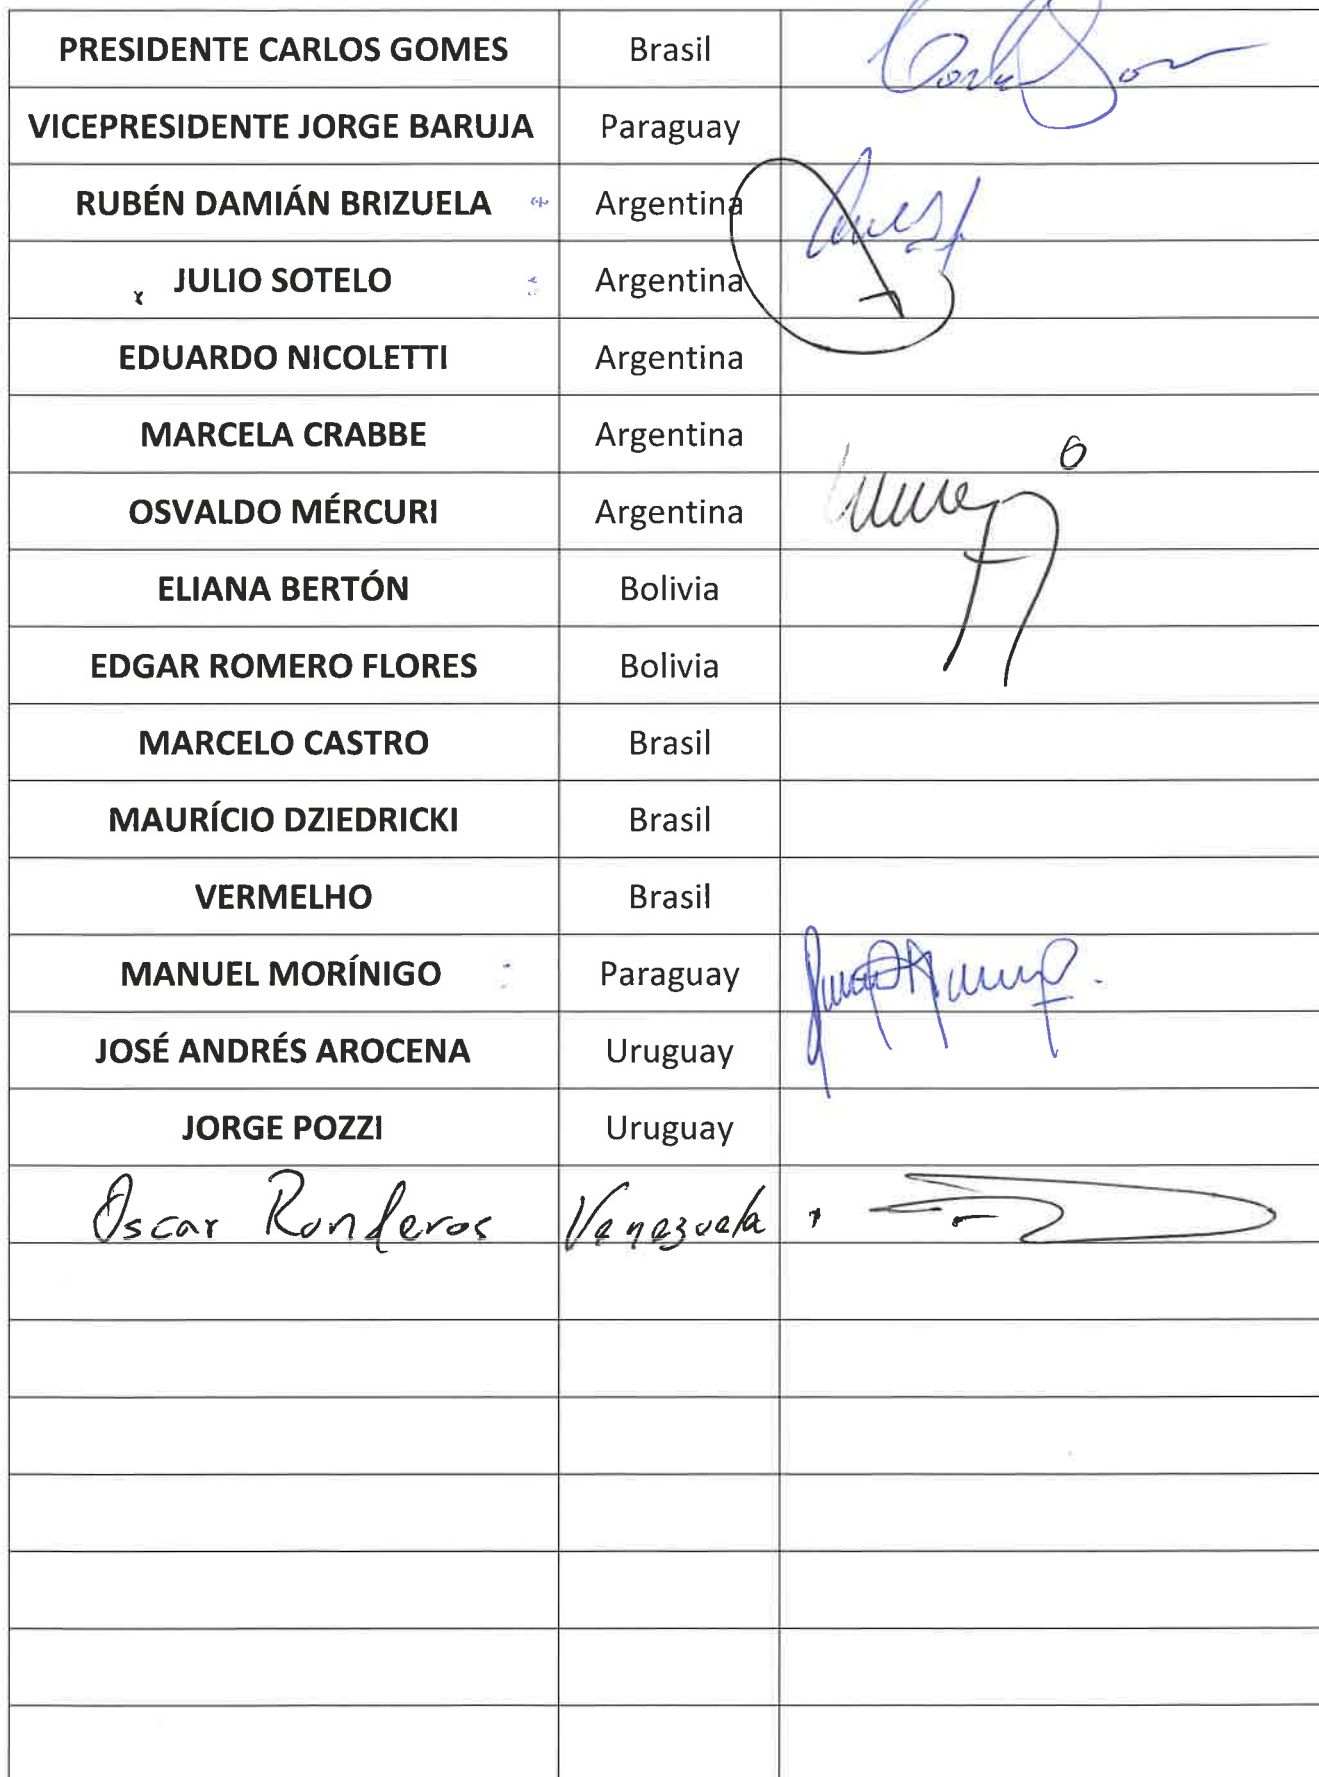 PRESIDENTE CARLOS GOMES Brasil
VICEPRESIDENTE JORGE BARUJA Paraguay
RUBÉN DAMIÁN BRIZUELA Argentina
JULIO SOTELO Argentina
EDUARDO NICOLETTI Argentina
MARCELA CRABBE Argentina
OSVALDO MÉRCURI Argentina
ELIANA BERTÓN Bolivia
EDGAR ROMERO FLORES Bolivia
MARCELO CASTRO Brasil
MAURÍCIO DZIEDRICKI Brasil
VERMELHO Brasil
MANUEL MORÍNIGO Paraguay
JOSÉ ANDRÉS AROCENA Uruguay
JORGE POZZI Uruguay
Oscar Ronderos Venezuela